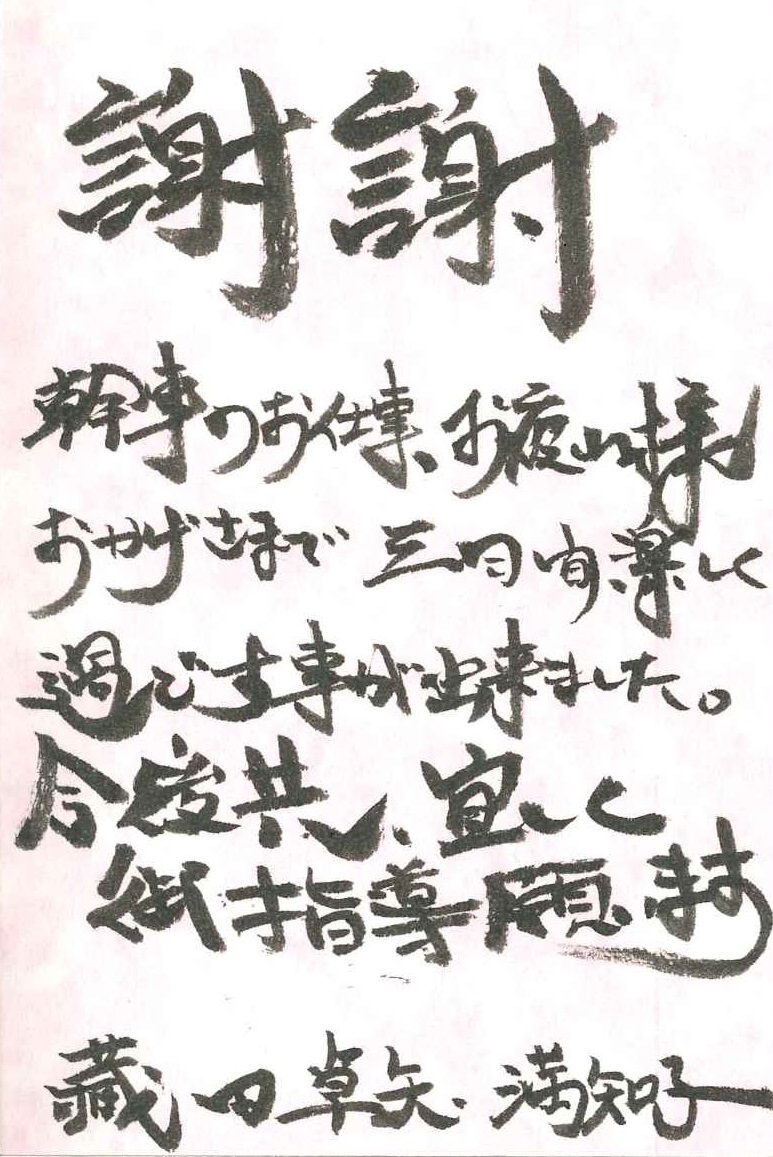 謝謝
幹事のお仕事、お疲れ様
おかげさまで 三日間楽しく
過ごす事が出来ました。
今後共、宜しく
御指導願います
藏田卓矢・満知子